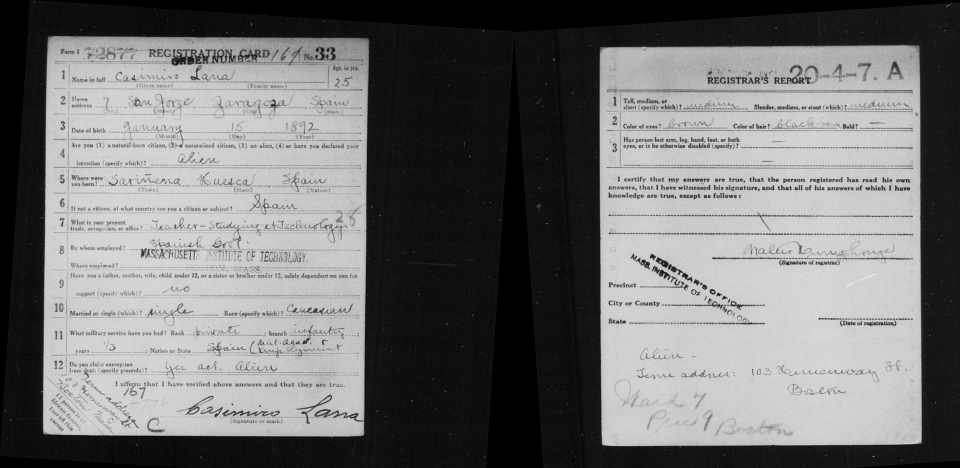 Form 1 72877 REGISTRATION CARD 169 No. 33
ORDER NUMBER
1 Name in full Casimiro Lana Age, in yrs. 25
(Given name) (Family name)
2 Home address 7 San Jorge Zaragoza Spain
3 Date of birth January 15 1892
(Month) (Day) (Year)
Are you (1) a natural-born citizen, (2) a naturalized citizen, (3) an alien, (4) or have you declared your
4 intention (specify which)? Alien
5 Where were you born? Sariñena Huesca Spain
(Town) (State) (Nation)
6 If not a citizen, of what country are you a citizen or subject? Spain
7 What is your present trade, occupation, or office? Teacher-Studying at Technology 28
8 By whom employed? Spanish Govt.
MASSACHUSETTS INSTITUTE OF TECHNOLOGY.
Where employed?
Have you a father, mother, wife, child under 12, or a sister or brother under 12, solely dependent on you for
9 support (specify which)? no
10 Married or single (which)? single Race (specify which)? Caucasian
11 What military service have you had? Rank private branch infantry
years 1/3 Nation or State Spain
12 Do you claim exemption from draft (specify grounds)? Yes act. Alien
I affirm that I have verified above answers and that they are true.
167
C
Casimiro Lana
(Signature or mark)
20-4-7. A
REGISTRAR'S REPORT
1 Tall, medium, or short (specify which)? medium Slender, medium, or stout (which)? medium
2 Color of eyes? brown Color of hair? black Bald? —
3 Has person lost arm, leg, hand, foot, or both
eyes, or is he otherwise disabled (specify)? —
I certify that my answers are true, that the person registered has read his own
answers, that I have witnessed his signature, and that all of his answers of which I have
knowledge are true, except as follows:
Walter Humphreys
(Signature of registrar)
REGISTRAR'S OFFICE
MASS. INSTITUTE OF TECHNOLOGY
Precinct
City or County
State
(Date of registration)
Alien -
Term address: 103 Hemenway St.
Boston
Ward 7
Prec 9 Boston